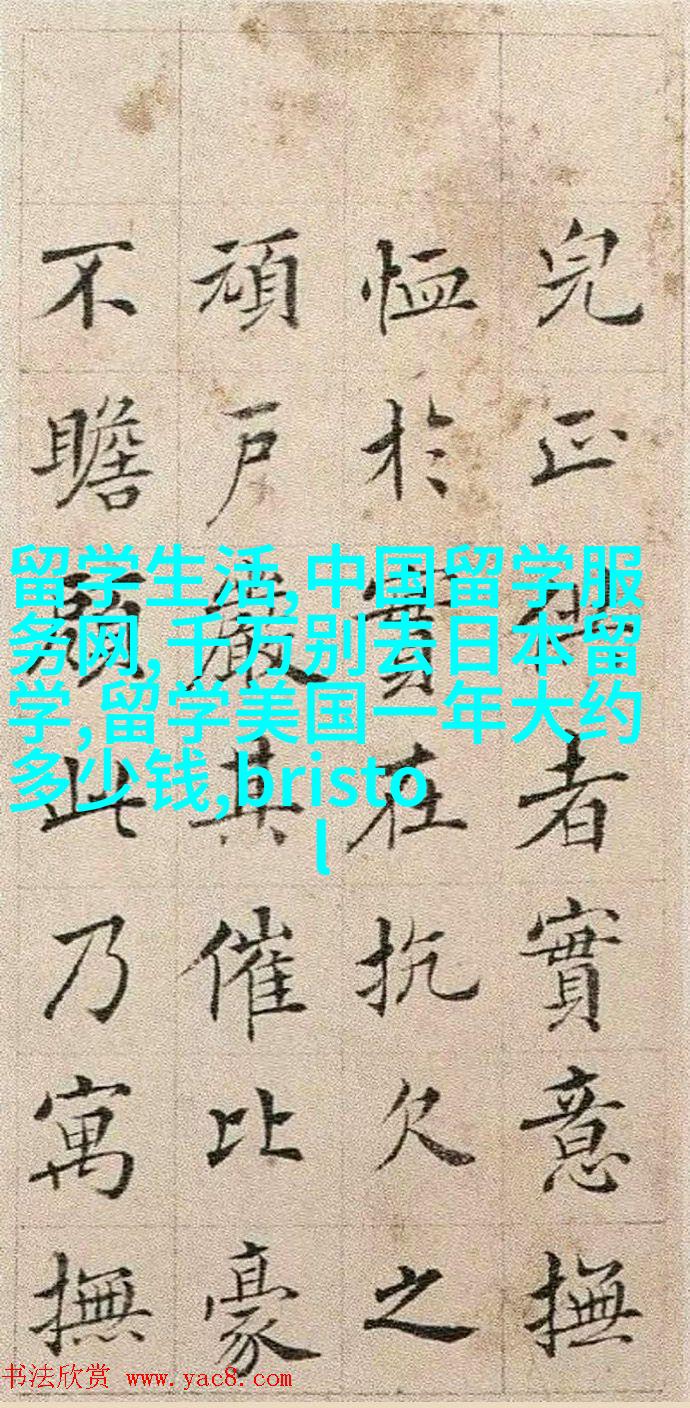 完正供者實意撫
恤於實在抗欠之
頑戶嚴其催比豪
不瞻顧此乃寓撫
留学生活,中国留学服
务网,千万别去日本留
学,留学美国一年大约
多少钱,bristo
l
书法欣赏 www.yac8.com